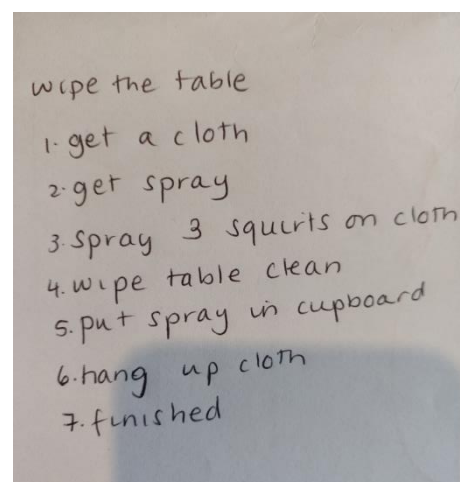 wipe the table
1. get a cloth
2. get spray
3. spray 3 squirts on cloth
4. wipe table clean
5. put spray in cupboard
6. hang up cloth
7. finished